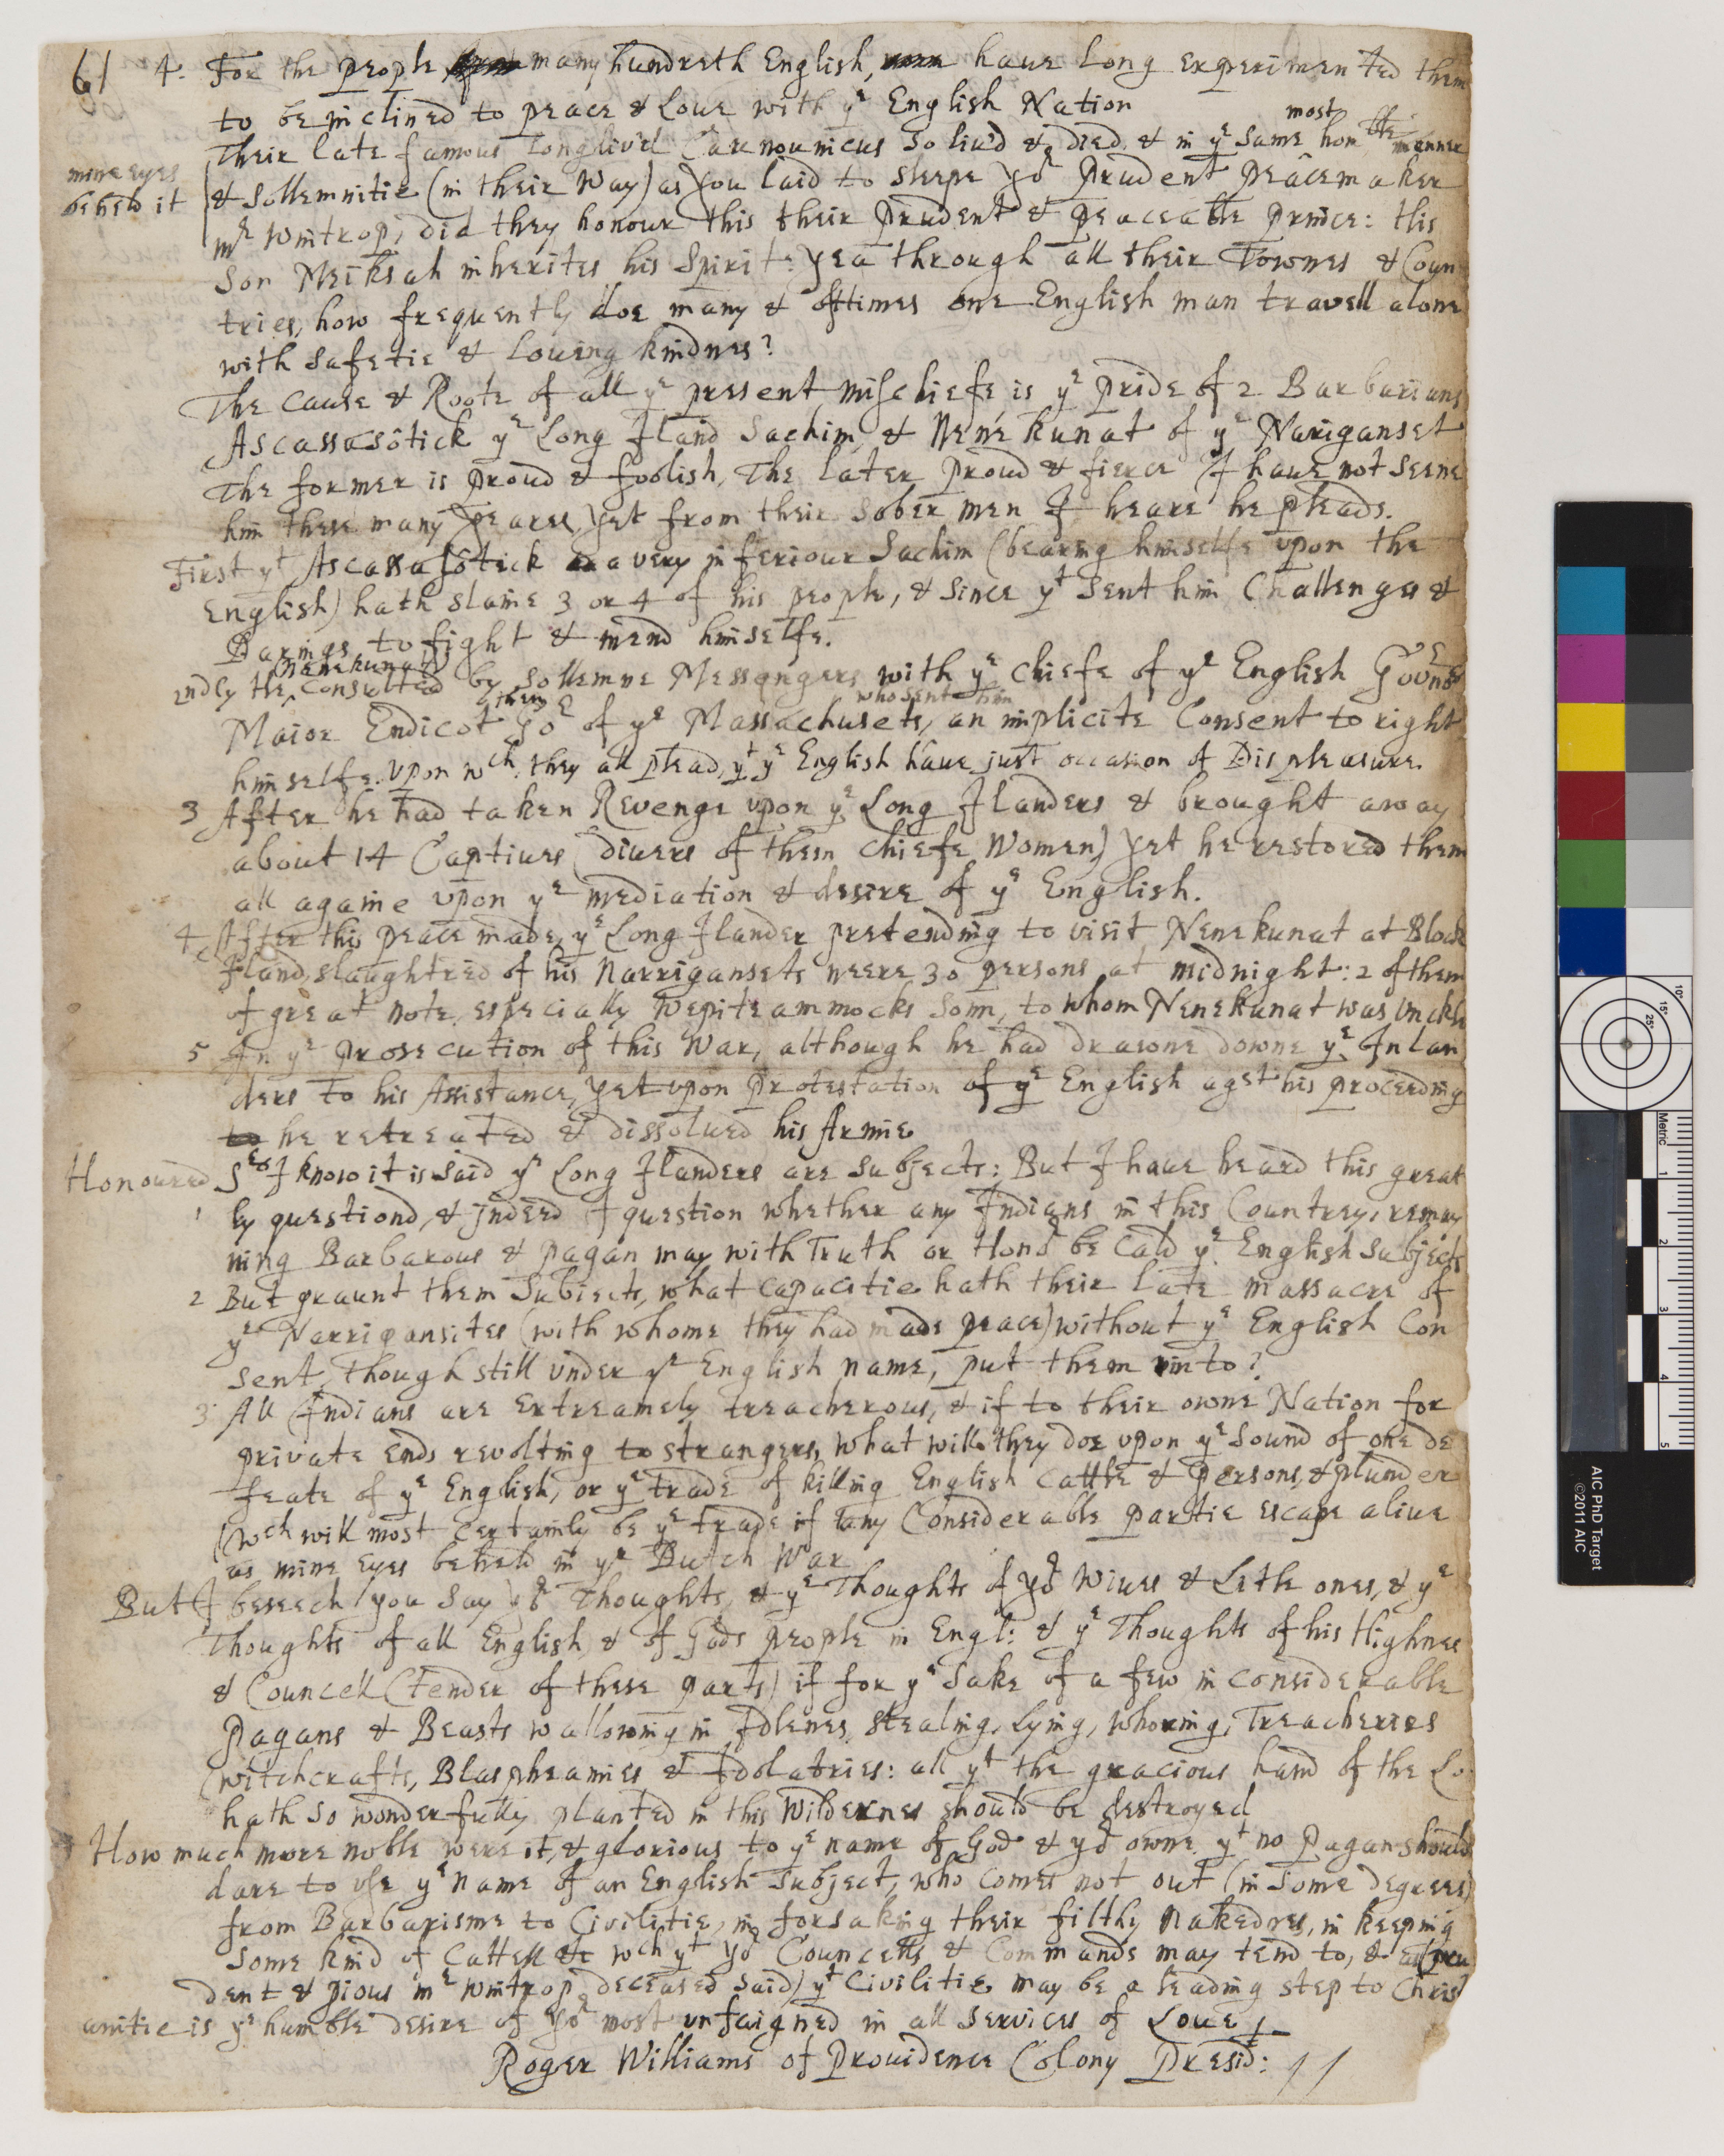 61 4. For the people many hundreth English, haue Long experimented them
to be inclined to peace & Loue with yͤ English Nation
Their late famous longliv'd Caunounicus so liu'd & died, & in yͤ same most honble manner
mine eyes
beheld it
& sollemnitie (in their way) as you laid to sleepe yoʳ prudent peacemaker
mʳ Wintrop, did they honour this their prudent & peaceable prince: His
Son Meiksah inherites his Spirit: yea through all their Townes & Coun
tries, how frequently doe many & ofttimes one English man travell alone
with safetie & Louing kindnes?
The cause & Roote of all yͤ present mischiefe is yͤ pride of 2 Barbarians
Ascassasôtick yͤ Long Iland Sachim, & Nenekunat of yͤ Nariganset
The former is proud & foolish, The later proud & fierce I haue not seene
him these many yeares, yet from their sober men I heare he pleads.
First yᵗ Ascassasôtick a very inferiour Sachim (bearing himselfe upon the
English) hath slaine 3 or 4 of his people, & since yᵗ sent him Challenges &
Darings to fight & mend himselfe.
2ndly He (Nenekunat) Consulted by sollemne Messengers with yͤ chiefe of yͤ English Govʳˢ
Maior Endicot then Goʳ of yͤ Massachusets, who sent him an implicite Consent to right
himselfe. Upon wch they all plead, yᵗ yͤ English haue just occasion of Displeasure.
3 After he had taken Revenge upon yͤ Long Ilanders & brought away
about 14 Captiues (diuers of them chiefe Women) yet he restored them
all againe upon yͤ mediation & desire of yͤ English.
4 After this peace made, yͤ Long Ilander pretending to visit Nenekunat at Block
Iland, slaughtred of his Narrigansets neere 30 persons at midnight: 2 of them
of great note, especially Wepiteammocks Sonn, to whom Nenekunat was Vnckle
5 In yͤ prosecution of this War, although he had drawne downe yͤ Inlan
ders to his Assistance, yet upon protestation of yͤ English agst his proceeding
he retreated & dissolued his Armie
Honoured Sʳˢ I know it is said yͤ Long Ilanders are subjects: But I haue heard this great
1 ly questiond, & indeed I question whether any Indians in this Countrey, remay
ning Barbarous & pagan may with Truth or Honoʳ be cald yͤ English Subjects
2 But graunt them Subiects, what capacitie hath their late massacre of
yͤ Narrigansites (with whome they had made peace) without yͤ English Con
sent, though still under yͤ English name, put them into?
3 All Indians are extreamely treacherous, & if to their owne Nation for
private ends revolting to strangers, what will they doe upon yͤ Sound of one de
feate of yͤ English, or yͤ trade of killing English cattle & persons, & plunder
(wch will most certainly be yͤ trade if any Considerable partie escape aliue
as mine eyes beheld in yͤ Dutch War
But I beseech you say yoʳ Thoughts, & yͤ Thoughts of yoʳ wiues & Litle ones, & yͤ
Thoughts of all English, & of Gods people in Engl: & yͤ Thoughts of his Highnes
& Councell (tender of these parts) if for yͤ sake of a few inconsiderable
pagans & Beasts wallowing in Idlenes, stealing, Lying, whoring, Treacheries
witchcrafts, Blaspheamies & Idolatries: all yᵗ the gracious hand of the Lo
hath so wonderfully planted in this Wildernes should be destroyed
How much more noble were it, & glorious to yͤ name of God & yoʳ owne, yᵗ no Pagan should
dare to use yͤ name of an English subject, who comes not out (in some degrees)
from Barbarisme to Civilitie, in forsaking their filthy nakednes, in keeping
some kind of cattell &c wch yᵗ yoʳ Councells & Commands may tend to, & as (pru
dent & pious mʳ Wintrop deceased said) yᵗ Civilitie may be a leading step to Christ
anitie is yͤ humble desire of Yoʳ most unfaigned in all services of Loue
Roger Williams of Prouidence Colony Presid:
10°
15°
25°
Metric
1
2
3
4
5
AIC PhD Target
©2011 AIC